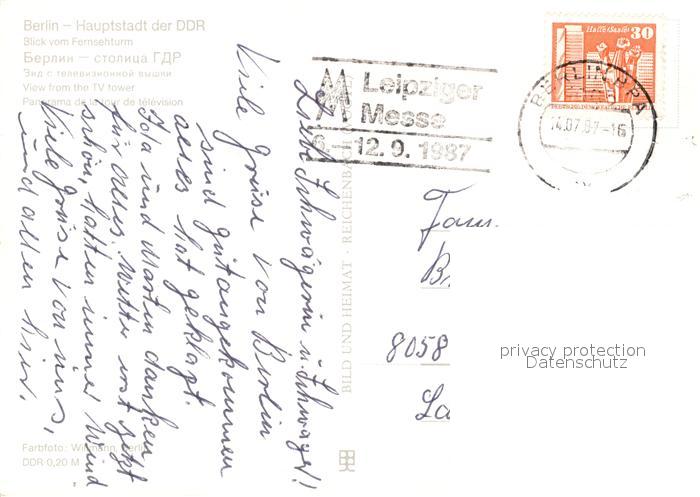 Berlin – Hauptstadt der DDR
Blick vom Fernsehturm
Берлин — столица ГДР
Вид с телевизионной вышки
View from the TV tower
Panorama de la tour de télévision
Halle-Saale
30
Leipziger
Messe
6.–12.9.1987
BERLIN BPA
14.07.87-16
Liebe Schwägerin u. Schwager!
Viele Grüße von Berlin
sind gut angekommen
alles hat geklagt.
und Martin danken
für alles. Wetter ist jetzt
schön, hatten immer Wind
Viele Grüße von uns,
und allen hier.
BILD UND HEIMAT · REICHENBACH
Fam.
B
8058
La
privacy protection
Datenschutz
Farbfoto: Willmann, Berlin
DDR 0,20 M